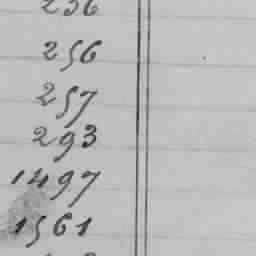 256
257
293
1497
1561